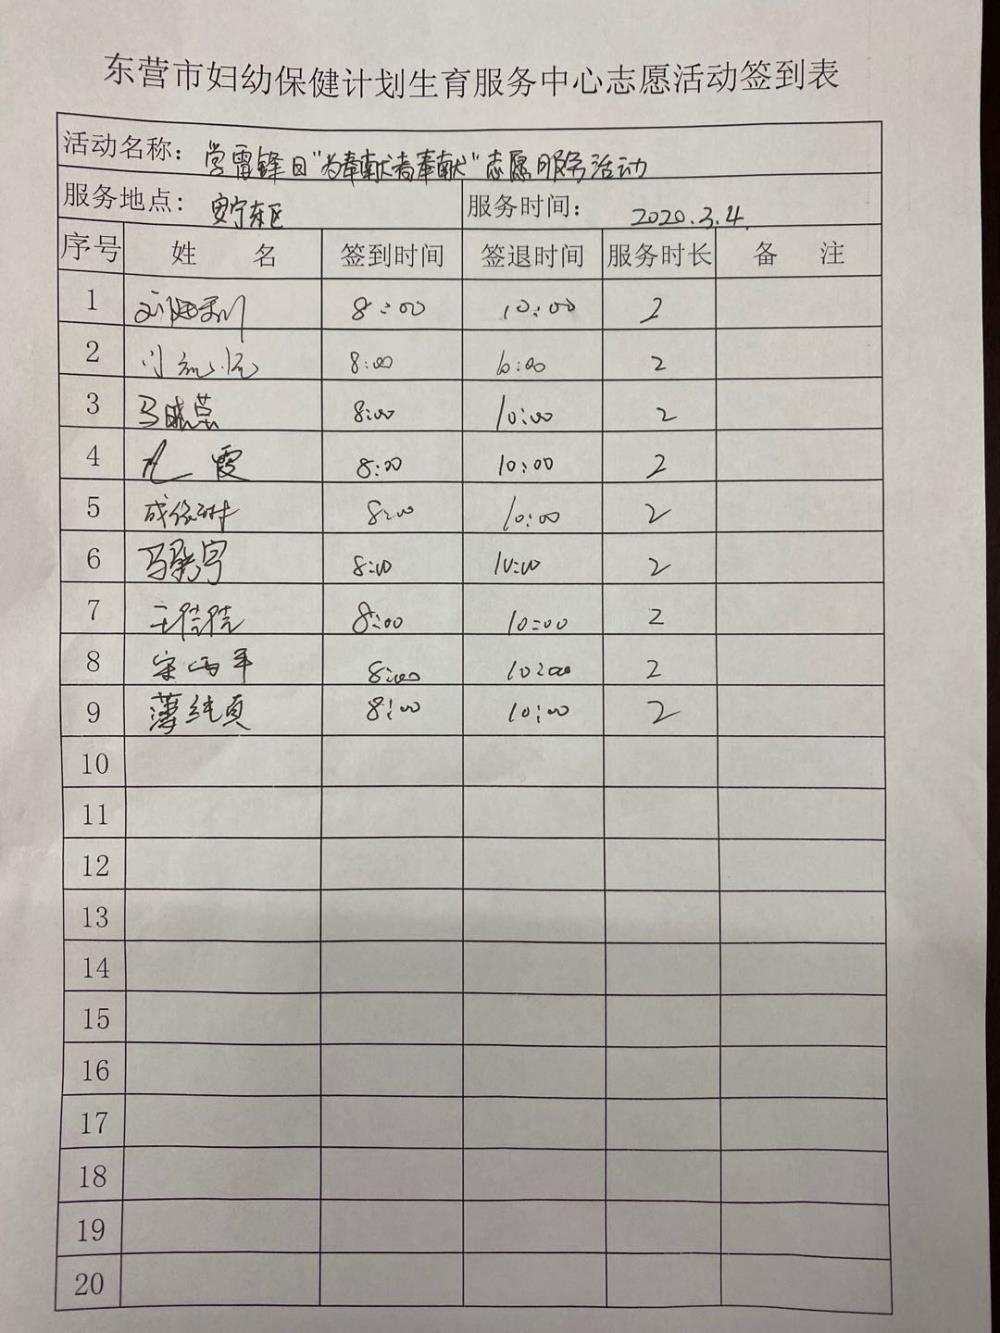 东营市妇幼保健计划生育服务中心志愿活动签到表
活动名称：学雷锋日“为奉献者奉献”志愿服务活动
服务地点：安宁东区 服务时间：2020.3.4.
序号 姓 名 签到时间 签退时间 服务时长 备 注
1 8:00 10:00 2
2 8:00 10:00 2
3 马晓芸 8:00 10:00 2
4 霞 8:00 10:00 2
5 8:00 10:00 2
6 8:00 10:00 2
7 王倩倩 8:00 10:00 2
8 8:00 10:00 2
9 薄纯贞 8:00 10:00 2
10
11
12
13
14
15
16
17
18
19
20